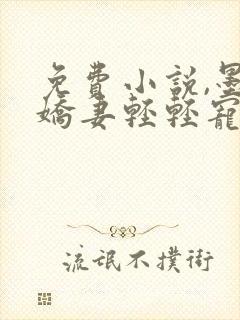 免費小說,墨
嬌妻輕輕寵
流氓不撲街